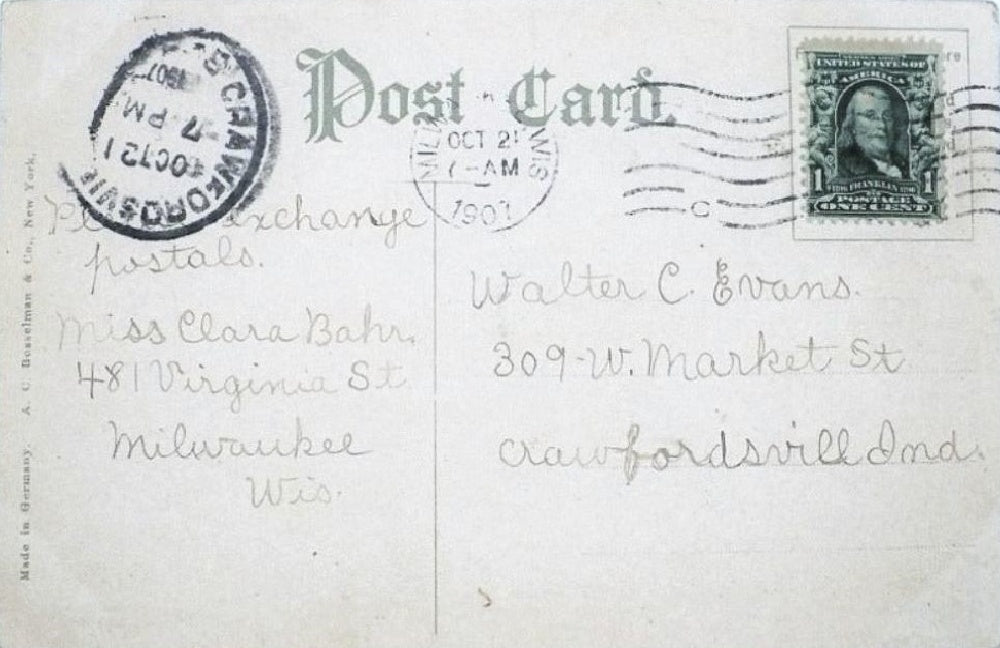 Post Card.
CRAWFORDSVI
OCT 21
7 PM
1907
MIL WIS
OCT 21
7-AM
1907
UNITED STATES OF
AMERICA
1 FRANKLIN 1
POSTAGE
ONE CENT
exchange
postals.
Miss Clara Bahr.
481 Virginia St
Milwaukee
Wis.
Walter C. Evans.
309-W. Market St
Crawfordsvill Ind.
Made in Germany. A. C. Bosselman & Co., New York.